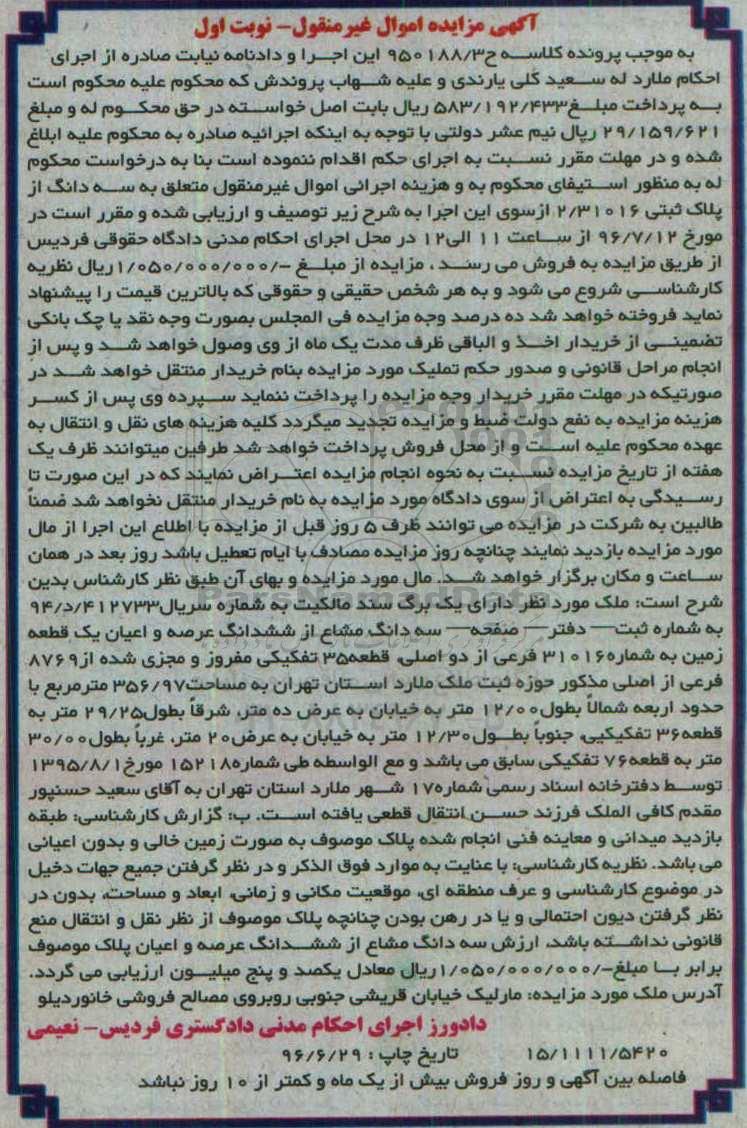 آگهی مزایده اموال غیرمنقول- نوبت اول
به موجب پرونده کلاسه ح۹۵۰۱۸۸/۳ این اجرا و دادنامه نیابت صادره از اجرای
احکام ملارد له سعید گلی یارندی و علیه شهاب پروندش که محکوم علیه محکوم است
به پرداخت مبلغ۵۸۳/۱۹۲/۴۳۳ ریال بابت اصل خواسته در حق محکوم له و مبلغ
۲۹/۱۵۹/۶۲۱ ریال نیم عشر دولتی با توجه به اینکه اجرائیه صادره به محکوم علیه ابلاغ
شده و در مهلت مقرر نسبت به اجرای حکم اقدام ننموده است بنا به درخواست محکوم
له به منظور استیفای محکوم به و هزینه اجرائی اموال غیرمنقول متعلق به سه دانگ از
پلاک ثبتی ۲/۳۱۰۱۶ ازسوی این اجرا به شرح زیر توصیف و ارزیابی شده و مقرر است در
مورخ ۹۶/۷/۱۲ از ساعت ۱۱ الی۱۲ در محل اجرای احکام مدنی دادگاه حقوقی فردیس
از طریق مزایده به فروش می رسد ، مزایده از مبلغ -/۱/۰۵۰/۰۰۰/۰۰۰ریال نظریه
کارشناسی شروع می شود و به هر شخص حقیقی و حقوقی که بالاترین قیمت را پیشنهاد
نماید فروخته خواهد شد ده درصد وجه مزایده فی المجلس بصورت وجه نقد یا چک بانکی
تضمینی از خریدار اخذ و الباقی ظرف مدت یک ماه از وی وصول خواهد شد و پس از
انجام مراحل قانونی و صدور حکم تملیک مورد مزایده بنام خریدار منتقل خواهد شد در
صورتیکه در مهلت مقرر خریدار وجه مزایده را پرداخت ننماید سپرده وی پس از کسر
هزینه مزایده به نفع دولت ضبط و مزایده تجدید میگردد کلیه هزینه های نقل و انتقال به
عهده محکوم علیه است و از محل فروش پرداخت خواهد شد طرفین میتوانند ظرف یک
هفته از تاریخ مزایده نسبت به نحوه انجام مزایده اعتراض نمایند که در این صورت تا
رسیدگی به اعتراض از سوی دادگاه مورد مزایده به نام خریدار منتقل نخواهد شد ضمناً
طالبین به شرکت در مزایده می توانند ظرف ۵ روز قبل از مزایده با اطلاع این اجرا از مال
مورد مزایده بازدید نمایند چنانچه روز مزایده مصادف با ایام تعطیل باشد روز بعد در همان
ساعت و مکان برگزار خواهد شد. مال مورد مزایده و بهای آن طبق نظر کارشناس بدین
شرح است: ملک مورد نظر دارای یک برگ سند مالکیت به شماره سریال۴۱۲۷۳۳/د/۹۴
به شماره ثبت— دفتر— صفحه— سه دانگ مشاع از ششدانگ عرصه و اعیان یک قطعه
زمین به شماره۳۱۰۱۶ فرعی از دو اصلی، قطعه۳۵ تفکیکی مفروز و مجزی شده از۸۷۶۹
فرعی از اصلی مذکور حوزه ثبت ملک ملارد استان تهران به مساحت۳۵۶/۹۷ مترمربع با
حدود اربعه شمالاً بطول۱۲/۰۰ متر به خیابان به عرض ده متر، شرقاً بطول۲۹/۲۵ متر به
قطعه۳۶ تفکیکیی، جنوباً بطول۱۲/۳۰ متر به خیابان به عرض۲۰ متر، غرباً بطول۳۰/۰۰
متر به قطعه۷۶ تفکیکی سابق می باشد و مع الواسطه طی شماره۱۵۲۱۸ مورخ۱۳۹۵/۸/۱
توسط دفترخانه اسناد رسمی شماره۱۷ شهر ملارد استان تهران به آقای سعید حسنپور
مقدم کافی الملک فرزند حسن انتقال قطعی یافته است. ب: گزارش کارشناسی: طبقه
بازدید میدانی و معاینه فنی انجام شده پلاک موصوف به صورت زمین خالی و بدون اعیانی
می باشد. نظریه کارشناسی: با عنایت به موارد فوق الذکر و در نظر گرفتن جمیع جهات دخیل
در موضوع کارشناسی و عرف منطقه ای، موقعیت مکانی و زمانی، ابعاد و مساحت، بدون در
نظر گرفتن دیون احتمالی و یا در رهن بودن چنانچه پلاک موصوف از نظر نقل و انتقال منع
قانونی نداشته باشد، ارزش سه دانگ مشاع از ششدانگ عرصه و اعیان پلاک موصوف
برابر با مبلغ-/۱/۰۵۰/۰۰۰/۰۰۰ریال معادل یکصد و پنج میلیون ارزیابی می گردد.
آدرس ملک مورد مزایده: مارلیک خیابان قریشی جنوبی روبروی مصالح فروشی خانوردیلو
دادورز اجرای احکام مدنی دادگستری فردیس- نعیمی
۱۵/۱۱۱۱/۵۴۲۰ تاریخ چاپ : ۹۶/۶/۲۹
فاصله بین آگهی و روز فروش بیش از یک ماه و کمتر از ۱۰ روز نباشد
ParsNamadData